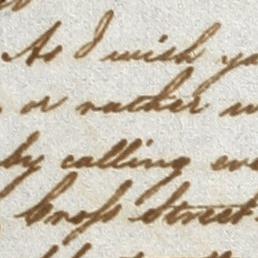 As I wish
or rather
by calling
Cross Street